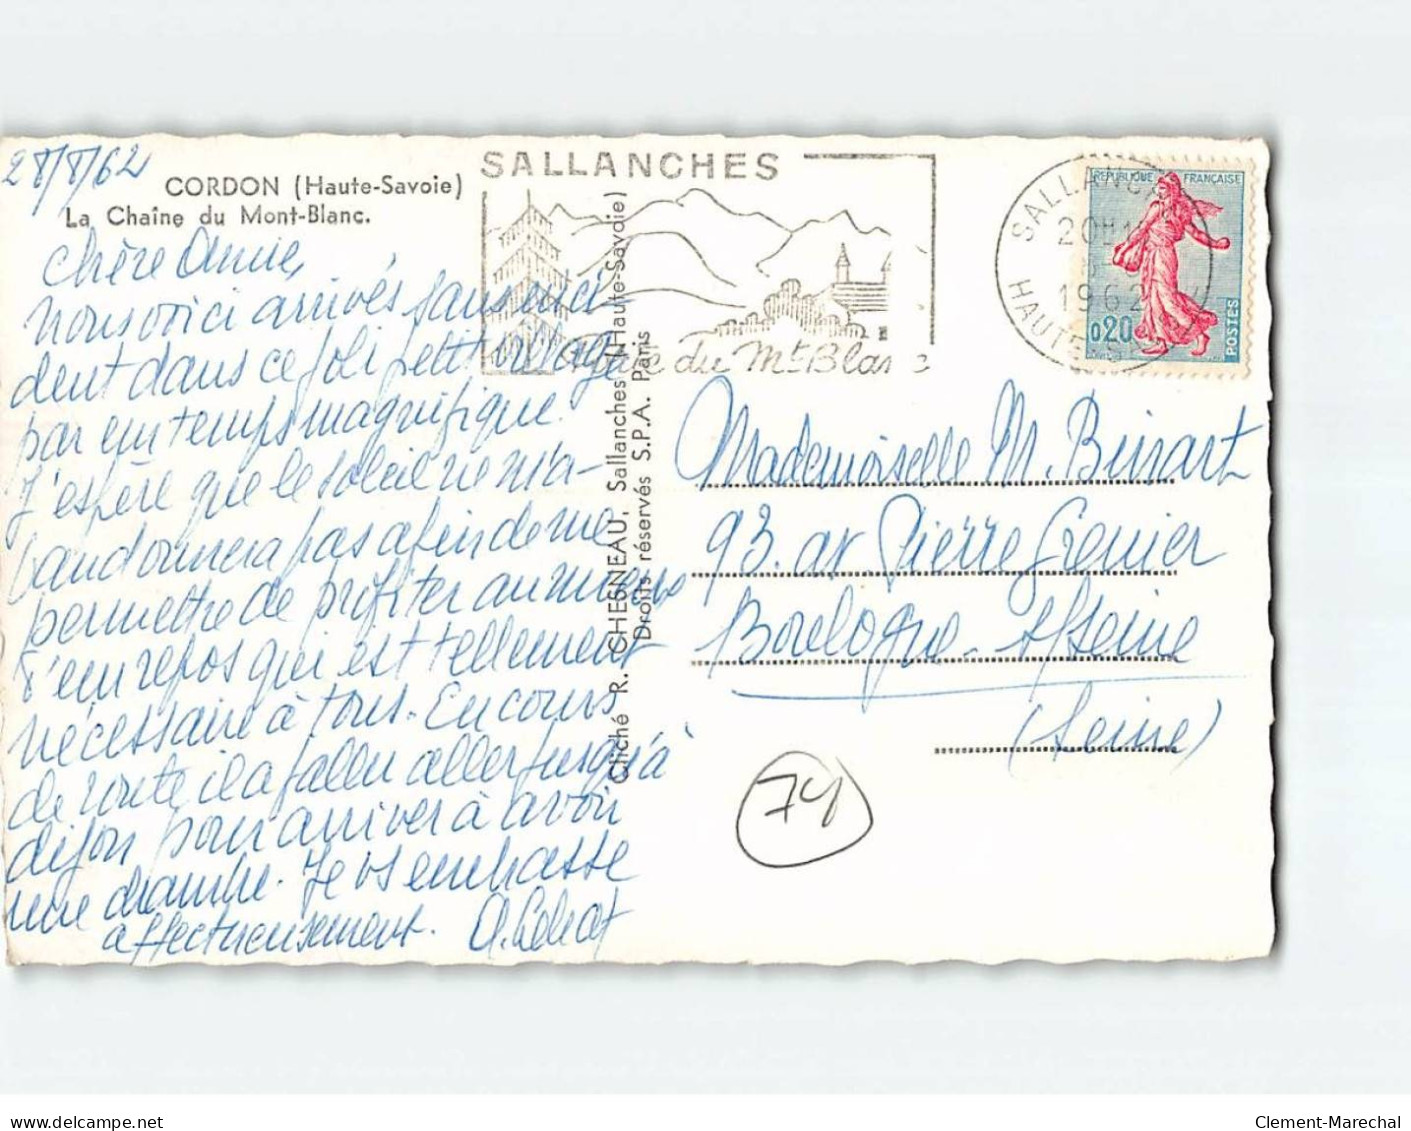 28/8/62
CORDON (Haute-Savoie)
La Chaîne du Mont-Blanc.
Chère Annie,
nous voici arrivés sans inci-
dent dans ce joli petit village
par un temps magnifique.
J'espère que le soleil ne m'a-
bandonnera pas afin de me
permettre de profiter au moins
d'un repos qui est tellement
nécessaire à tous. En cours
de route, il a fallu aller jusqu'à
dijon pour arriver à avoir
une chambre. Je vs embrasse
affectueusement.
Cliché R. CHESNEAU, Sallanches (Haute-Savoie)
(Haute-Savoie)
Droits réservés S.P.A. Paris
SALLANCHES
du Mt Blanc
SALLANCHES
20H
1962
HAUTE
REPUBLIQUE FRANÇAISE
0,20
POSTES
Mademoiselle M. Bissart
93. av Pierre Grenier
Boulogne - s/Seine
(Seine)
74
www.delcampe.net
Clement-Marechal